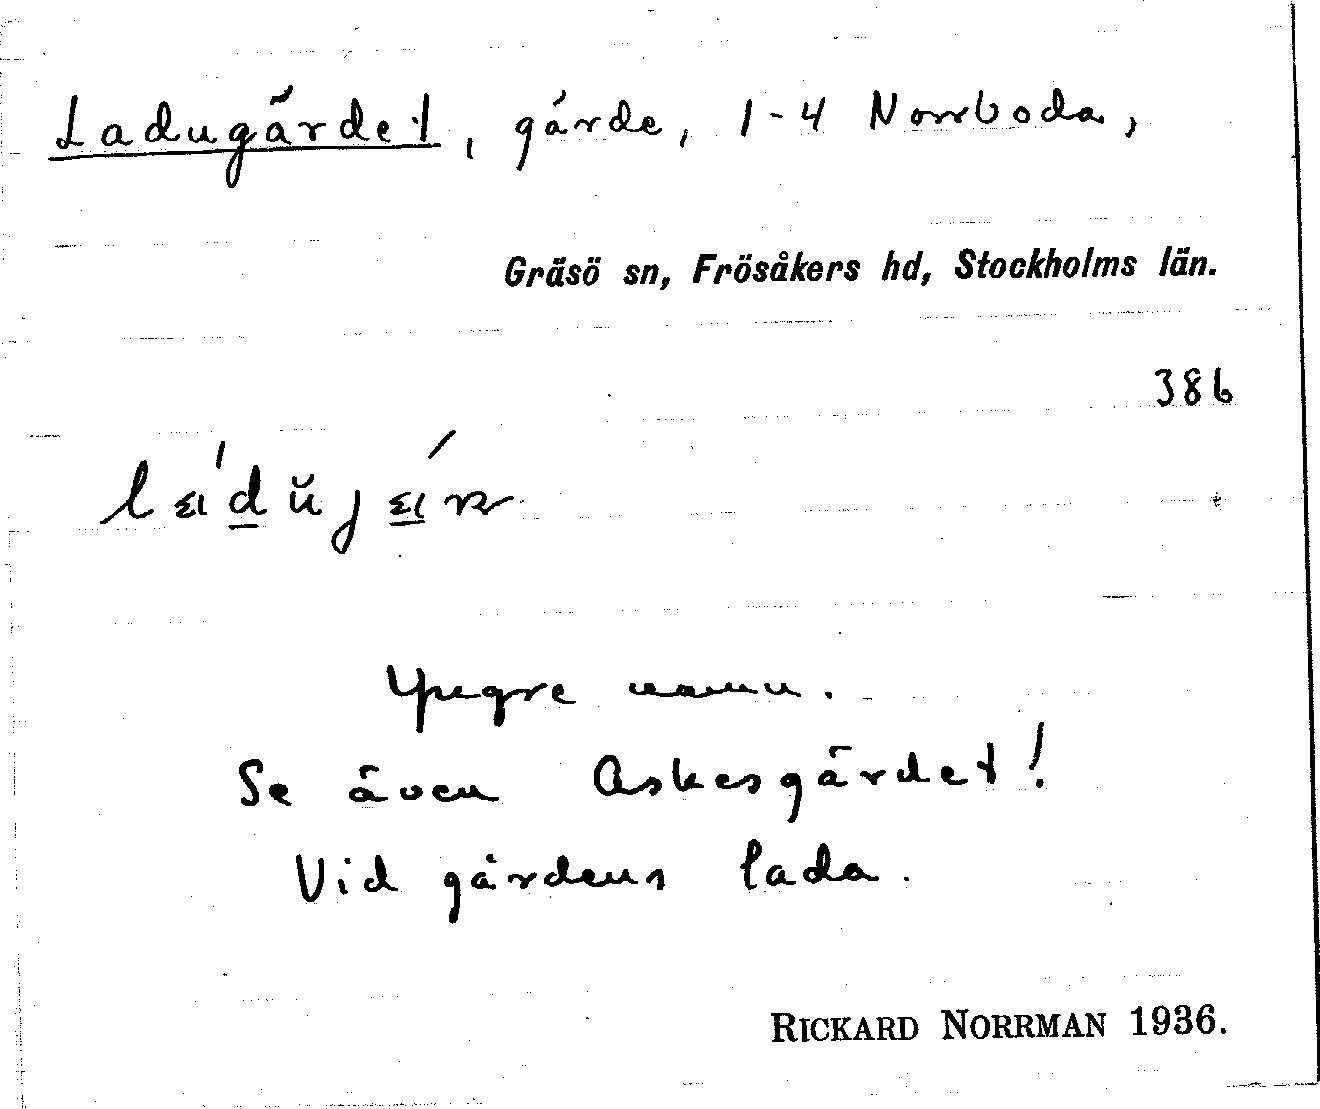 Ladugärdet, gärde, 1-4 Norrboda,
Gräsö sn, Frösåkers hd, Stockholms län.
386
Yngre namn.
Se även Askesgärdet!
Vid gårdens lada.
RICKARD NORRMAN 1936.